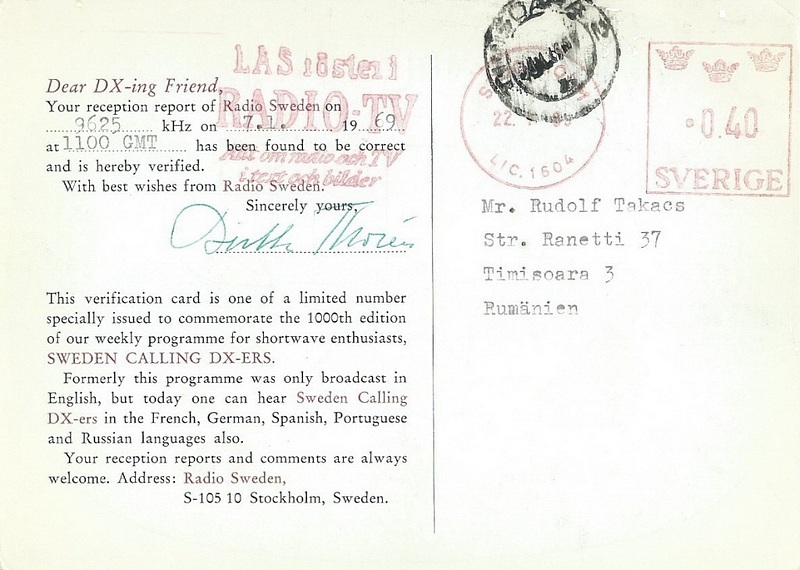 Dear DX-ing Friend,
Your reception report of Radio Sweden on
9625 kHz on 7.1. 1969
at 1100 GMT has been found to be correct
and is hereby verified.
With best wishes from Radio Sweden.
Sincerely yours,
This verification card is one of a limited number
specially issued to commemorate the 1000th edition
of our weekly programme for shortwave enthusiasts,
SWEDEN CALLING DX-ERS.
Formerly this programme was only broadcast in
English, but today one can hear Sweden Calling
DX-ers in the French, German, Spanish, Portuguese
and Russian languages also.
Your reception reports and comments are always
welcome. Address: Radio Sweden,
S-105 10 Stockholm, Sweden.
LÄS röster i
RADIO-TV
Allt om radio och TV
i text och bilder
22.
LIC. 1604
0.40
SVERIGE
Mr. Rudolf Takacs
Str. Ranetti 37
Timisoara 3
Rumänien